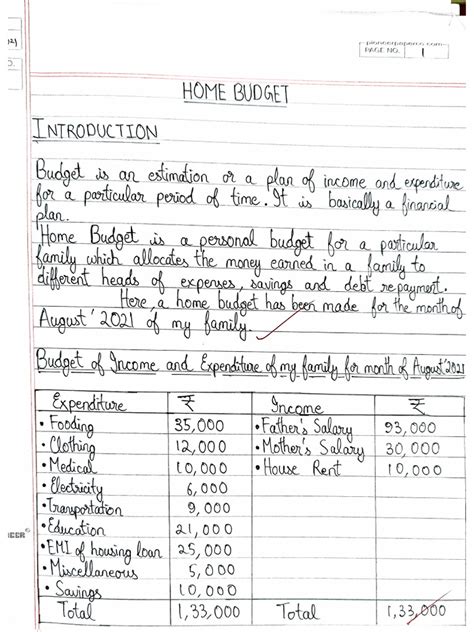 121
D.
pioneerpaperco.com
PAGE NO. 1
HOME BUDGET
INTRODUCTION
Budget is an estimation or a plan of income and expenditure
for a particular period of time. It is basically a financial
plan.
'Home Budget is a personal budget for a particular
family which allocates the money earned in a family to
different heads of expenses, savings and debt repayment.
Here, a home budget has been made for the month of
August' 2021 of my family.
Budget of Income and Expenditure of my family for month of August'2021
Expenditure ₹ Income ₹
• Fooding 35,000 • Father's Salary 93,000
• Clothing 12,000 • Mother's Salary 30,000
• Medical 10,000 • House Rent 10,000
• Electricity 6,000
• Transportation 9,000
• Education 21,000
• EMI of housing loan 25,000
• Miscellaneous 5,000
• Savings 10,000
Total 1,33,000 Total 1,33,000